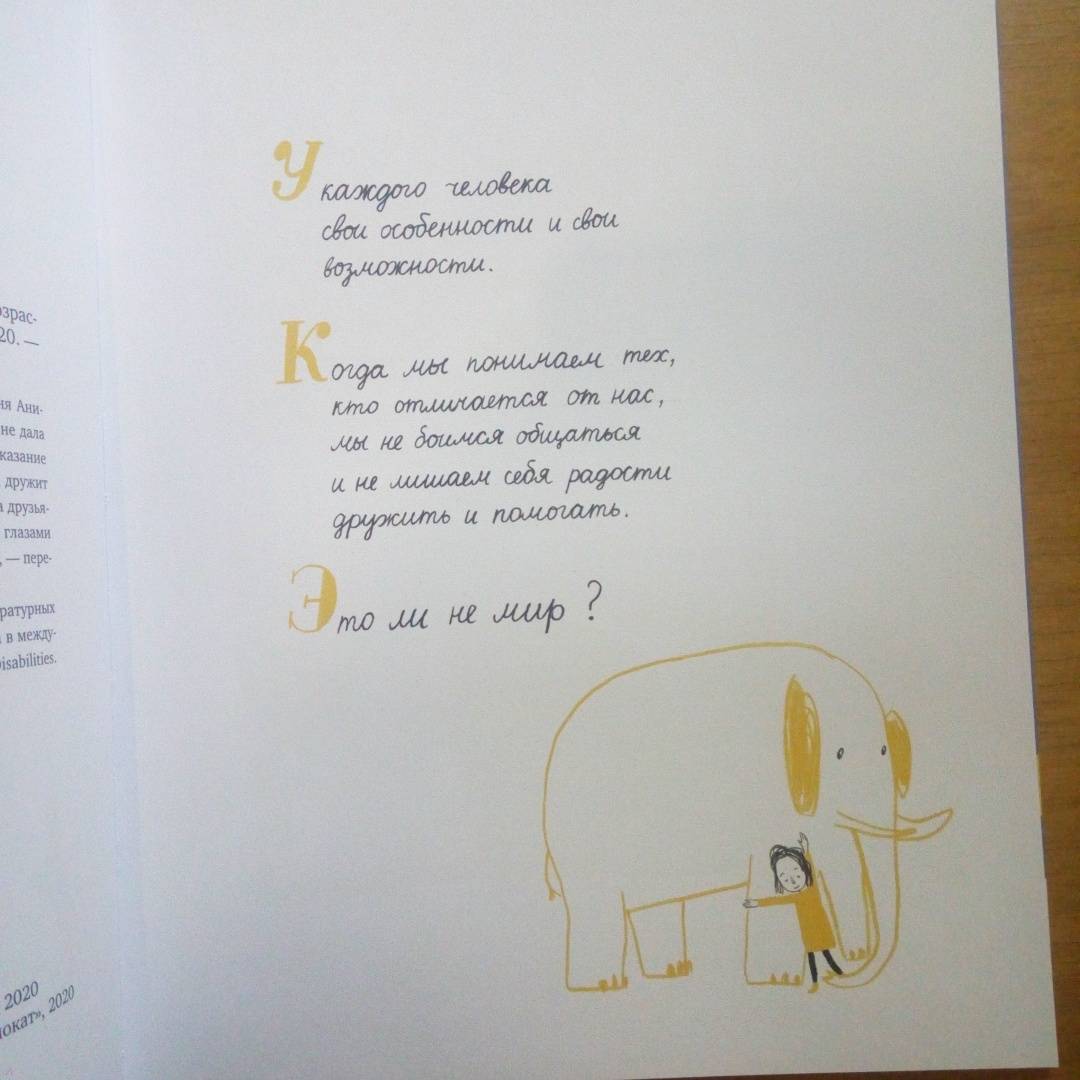 озрас-
20. —
ня Ани-
не дала
казание
дружит
а друзья-
глазами
, — пере-
ратурных
а в между-
Disabilities.
2020
окат», 2020
У каждого человека
свои особенности и свои
возможности.
Когда мы понимаем тех,
кто отличается от нас,
мы не боимся общаться
и не лишаем себя радости
дружить и помогать.
Это ли не мир?